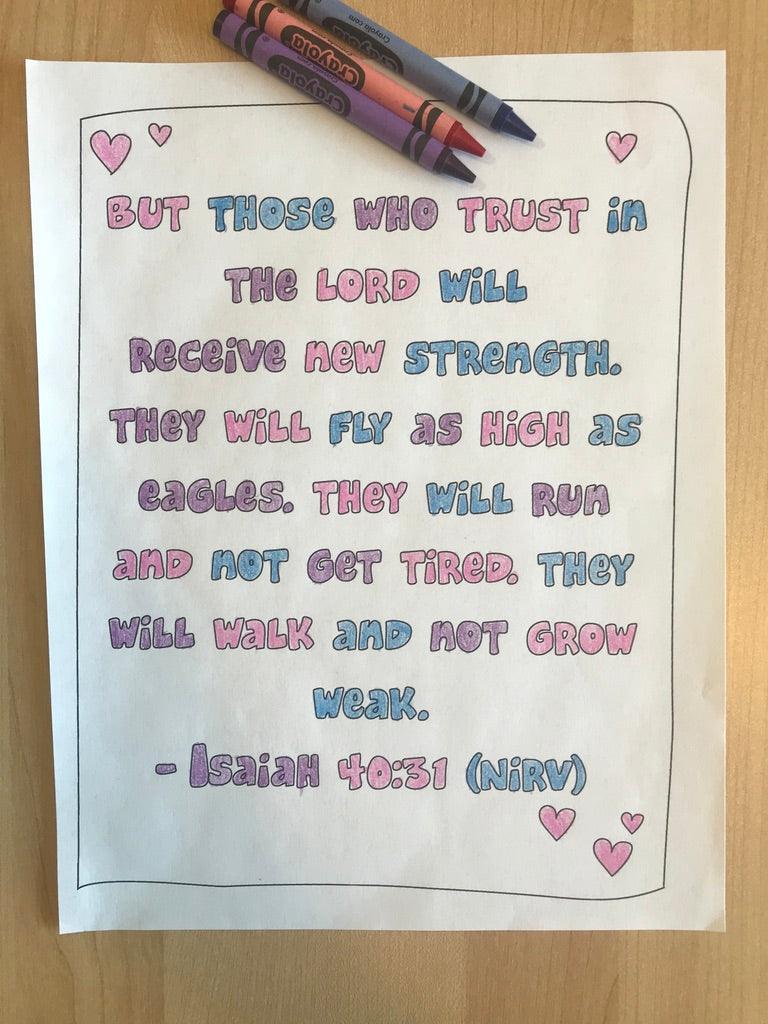 Crayola
crayola.com
Crayola
Crayola
BUT THOSE WHO TRUST in
THE LORD WiLL
Receive new STRENGTH.
THEY WiLL FLY as HiGH as
eaGLes. THEY WiLL Run
anD noT GeT TiReD. THEY
WiLL WaLK anD noT GROW
weaK.
- IsaiaH 40:31 (NiRV)